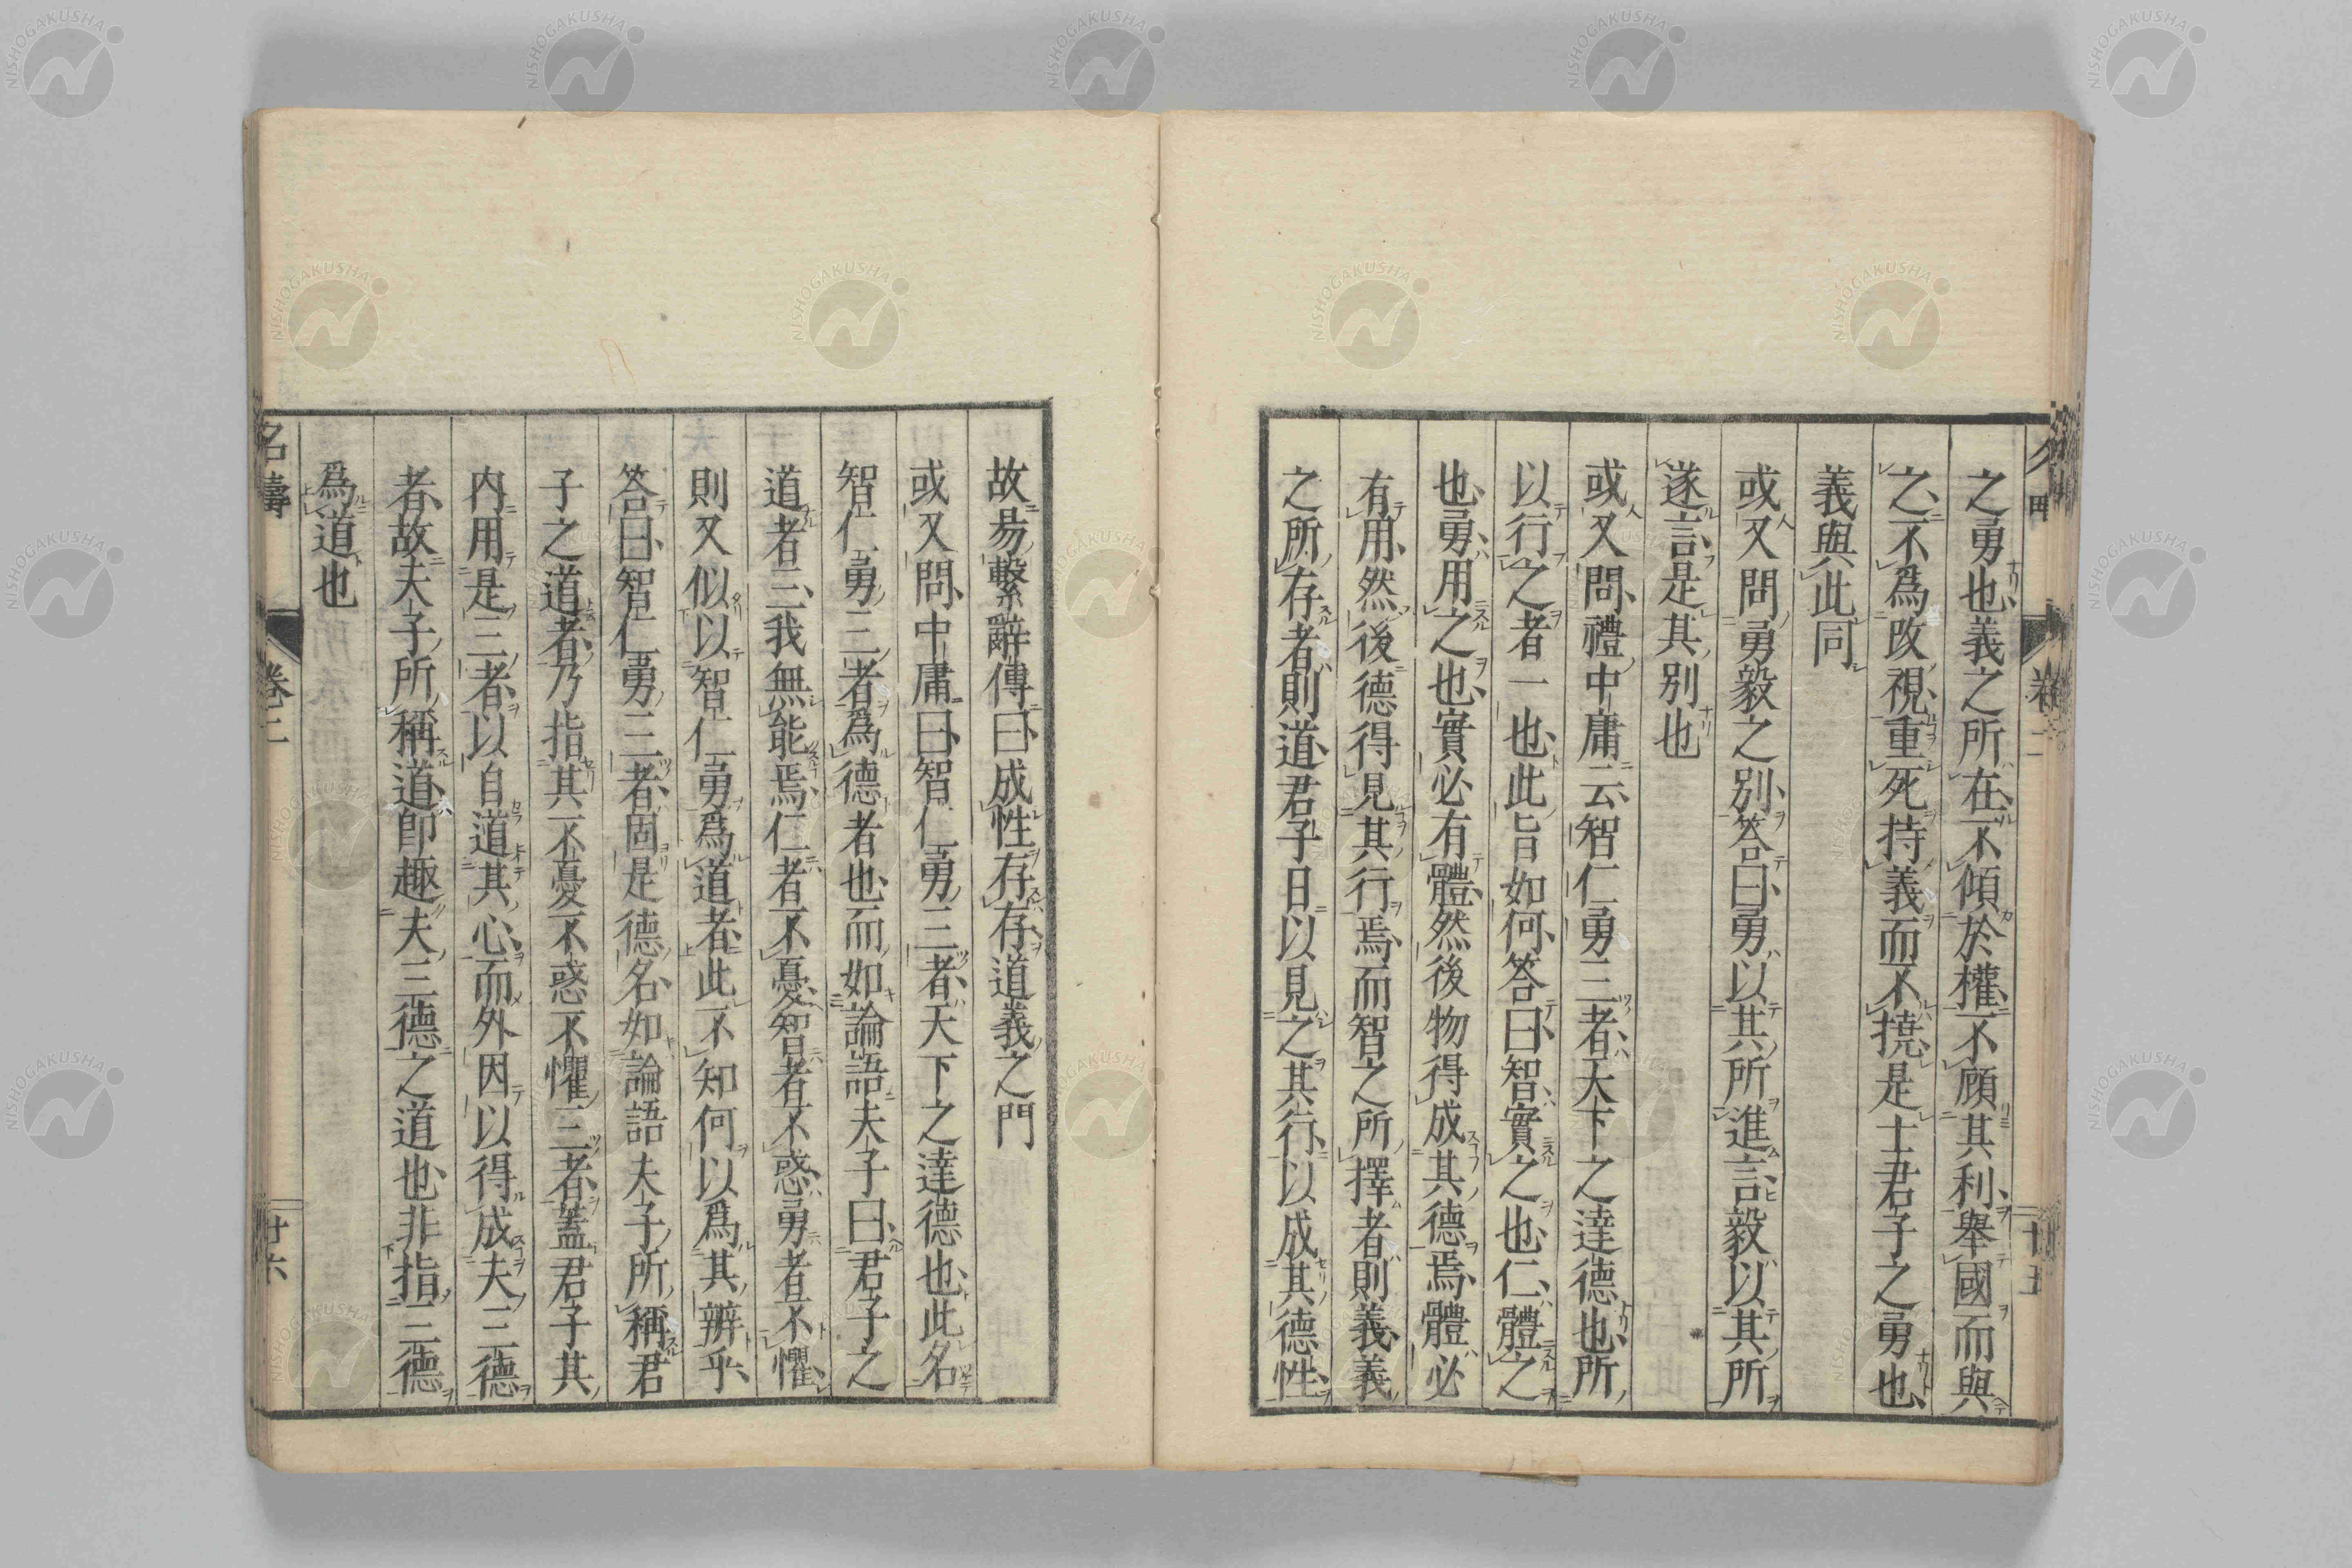 之勇也義之所在不傾於權不顧其利舉國而與
之不爲改視重死持義而不撓是士君子之勇也
義與此同
或又問勇毅之別答曰勇以其所進言毅以其所
遂言是其別也
或又問禮中庸云智仁勇三者天下之達德也所
以行之者一也此旨如何答曰智實之也仁體之
也勇用之也實必有體然後物得成其德焉體必
有用然後德得見其行焉而智之所擇者則義義
之所存者則道君子日以見之其行以成其德性
卷二
廿五
故易繫辭傳曰成性存存道義之門
或又問中庸曰智仁勇三者天下之達德也此名
智仁勇三者爲德者也而如論語夫子曰君子之
道者三我無能焉仁者不憂智者不惑勇者不懼
則又似以智仁勇爲道者此不知何以爲其辨乎
答曰智仁勇三者固是德名如論語夫子所稱君
子之道者乃指其不憂不惑不懼三者蓋君子其
内用是三者以自道其心而外因以得成夫三德
者故夫子所稱道卽趣夫三德之道也非指三德
爲道也
名疇
卷二
廿六
NISHOGAKUSHA